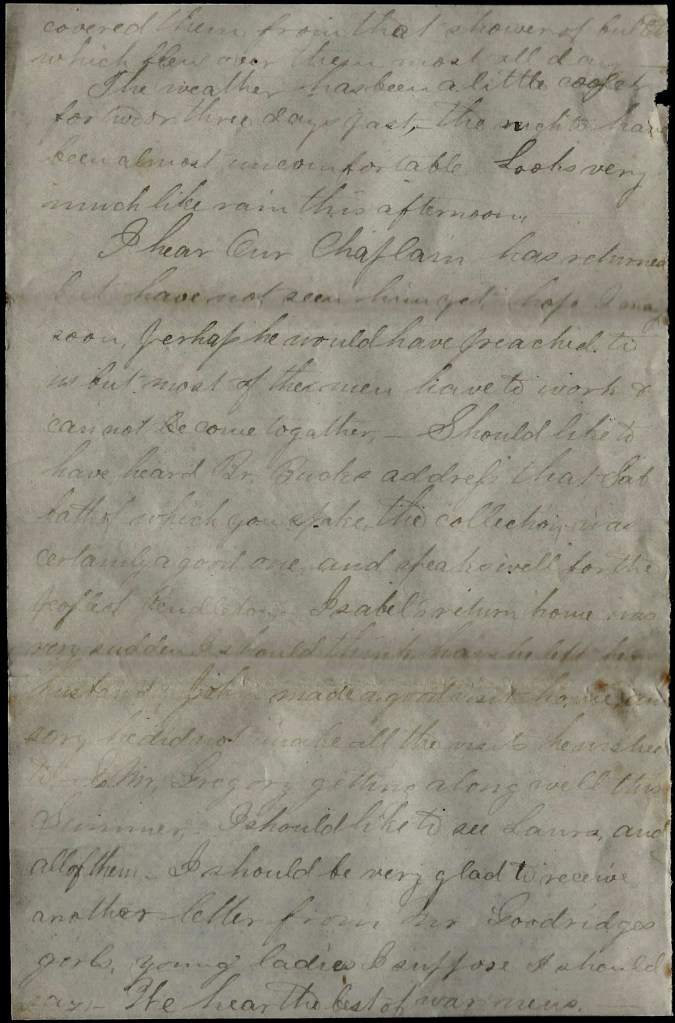 covered them from that shower of bullets
which flew over them most all day
The weather has been a little cooler
for two or three days past, the nights have
been almost uncomfortable. Looks very
much like rain this afternoon,
I hear Our Chaplain has returned
but have not seen him yet hope I may
soon, perhaps he would have preached to
us but most of the men have to work &
can not be come togather, – Should like to
have heard Br. Bucks address that Sab
bath of which you spake, the collection was
certainly a good one, and speaks well for the
people of I should Isabel's return home was
very sudden I should think, has he left her
husband, John made a good visit home, am
sory he did not make all the visits he wished
to Mr, Gregory getting along well this
Summer, I should like to see Laura, and
all of them – I should be very glad to receive
another letter from Mr Goodridges
girls, young ladies I suppose I should
say – We hear the best of war news. –